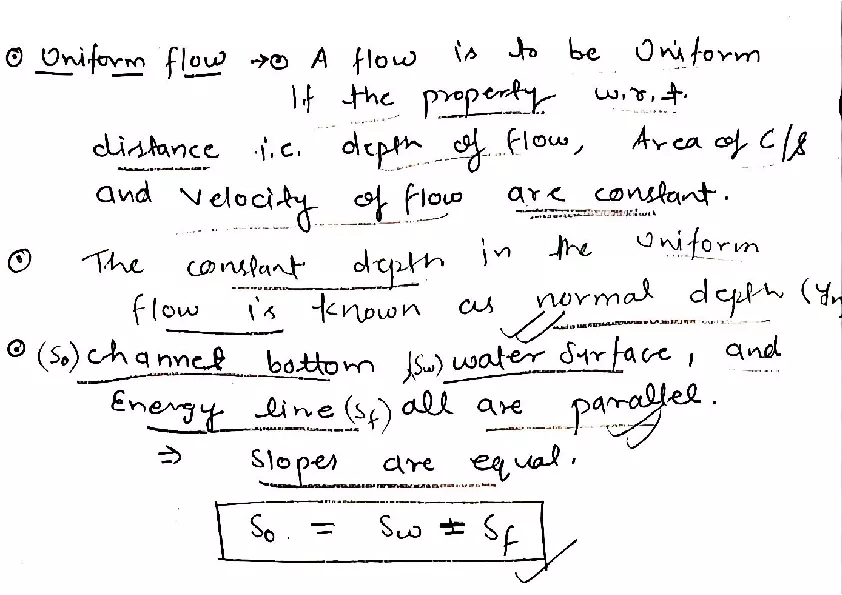 ⊙ Uniform flow →⊙ A flow is to be Uniform
If the property w.r.t.
distance i.e. depth of flow, Area of C/s
and velocity of flow are constant.
⊙ The constant depth in the uniform
flow is known as normal depth (yn
⊙ (So) channel bottom, (Sw) water surface, and
Energy line (Sf) all are parallel.
⇒ Slopes are equal.
So = Sw = Sf